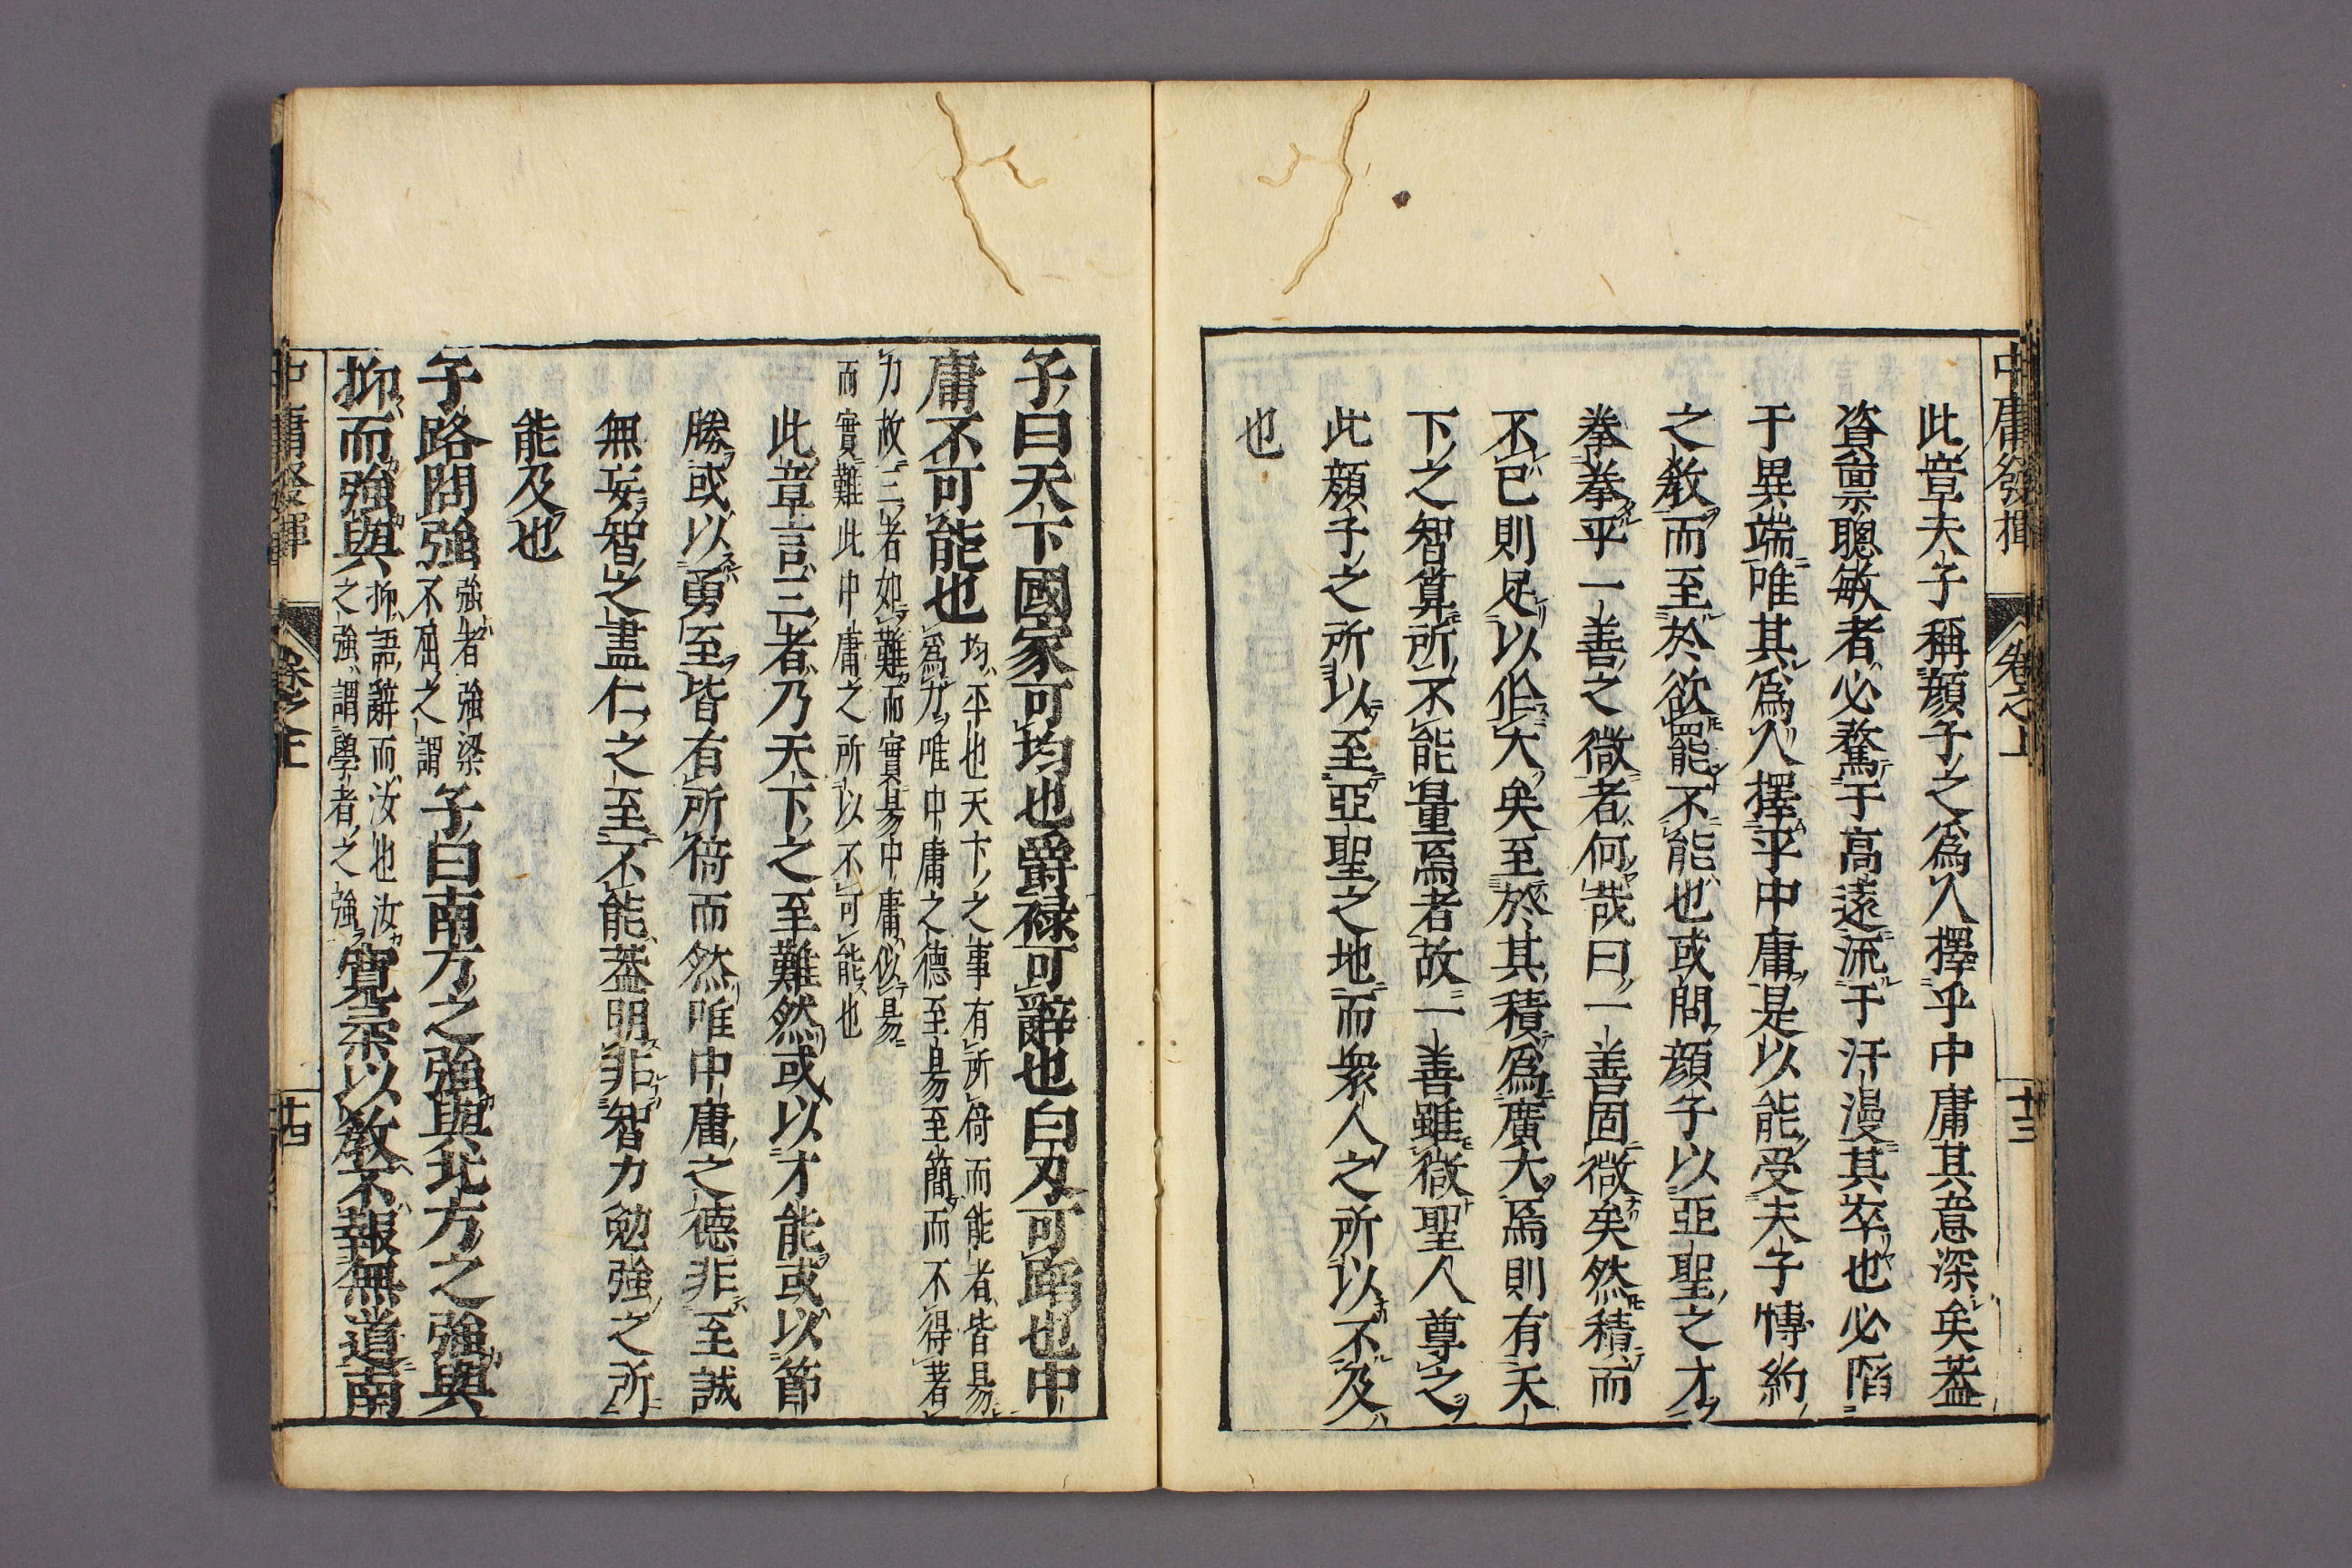 中庸發揮 卷之上 十三
此章夫子稱顔子之爲人擇乎中庸其意深矣葢
資稟聰敏者必騖于高遠流于汗漫其卒也必陷
于異端唯其爲人擇乎中庸是以能受夫子博約
之教而至於欲罷不能也或問顔子以亞聖之才
拳拳乎一善之微者何哉曰一善固微矣然積而
不已則足以作大矣至於其積爲廣大焉則有天
下之智算所不能量焉者故一善雖微聖人尊之
此顔子之所以至亞聖之地而衆人之所以不及
也
子曰天下國家可均也爵祿可辭也白刃可蹈也中
庸不可能也
均平也天下之事有所倚而能者皆易
爲力唯中庸之德至易至簡而不得著
力故三者如難而實易中庸似易
而實難此中庸之所以不可能也
此章言三者乃天下之至難然或以才能或以節
勝或以勇至皆有所倚而然唯中庸之德非至誠
無妄智之盡仁之至不能葢明非智力勉強之所
能及也
子路問強
強者強梁
不屈之謂
子曰南方之強與北方之強與
抑而強與
抑語辭而汝也汝
之強謂學者之強
寬柔以教不報無道南
中庸發揮 卷之上 十四